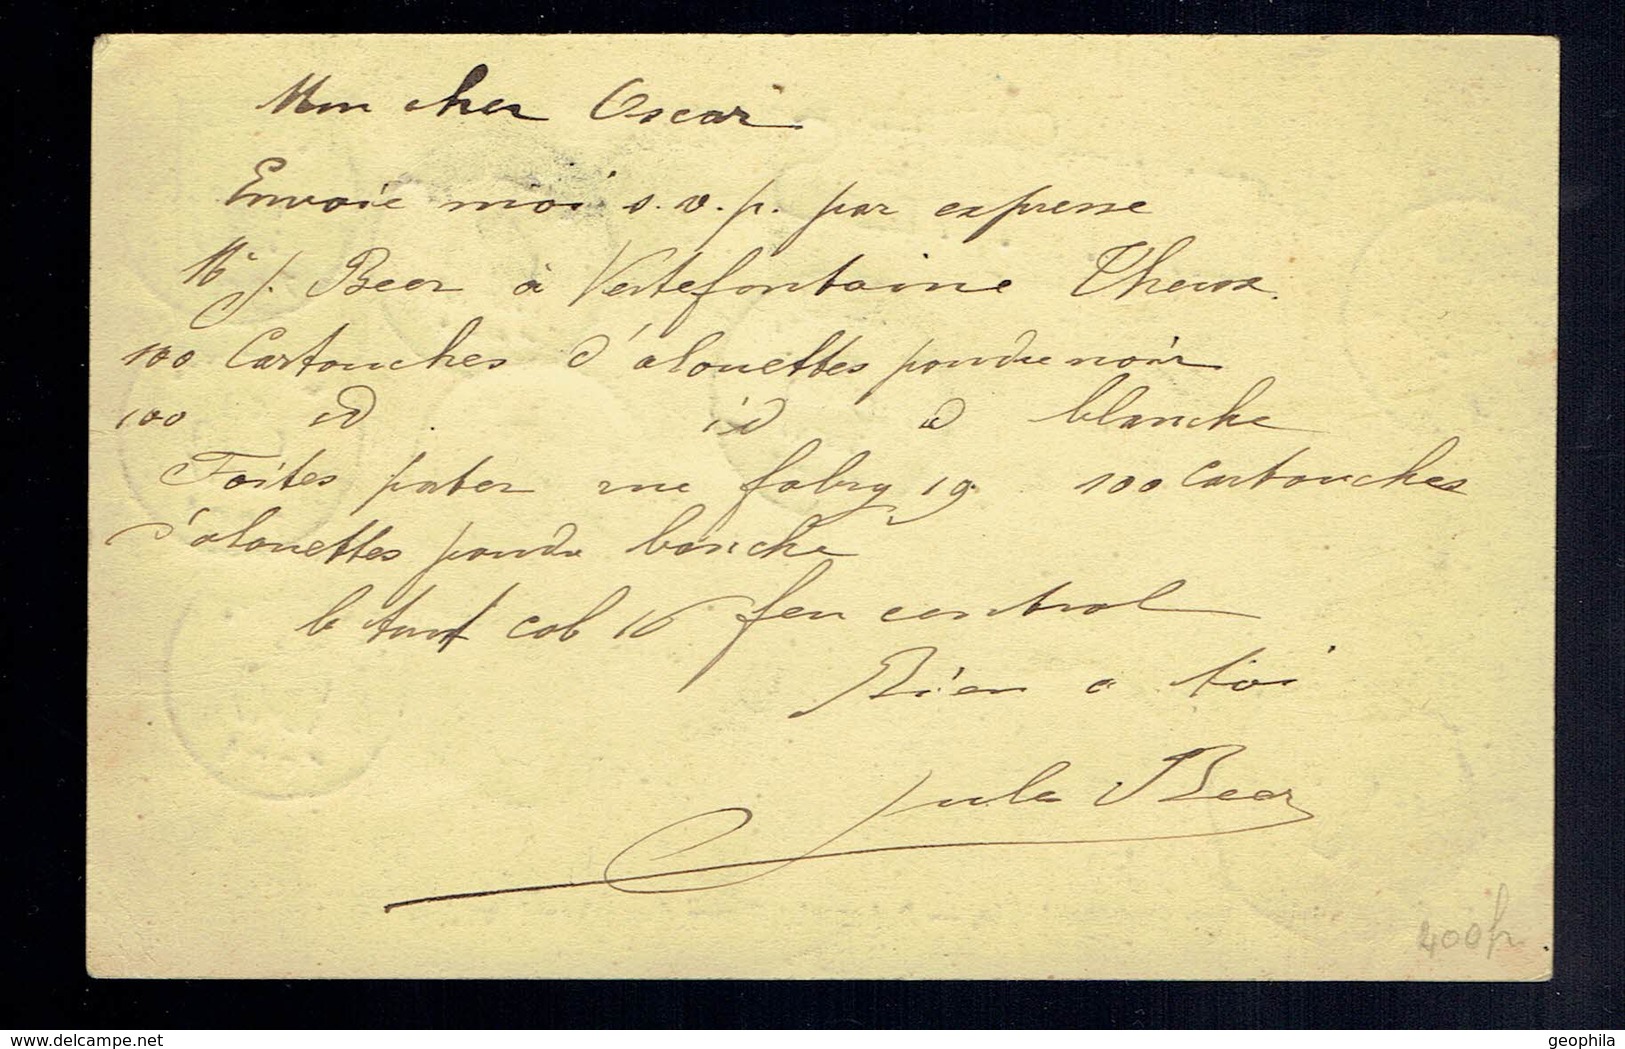 Mon cher Oscar
Envoie moi s.v.p. par expresse
Mr J. Beer à Vertefontaine Theux
100 Cartouches d'alouettes poudre noir
100 id id d blanche
Faites porter rue fabry 19 100 Cartouches
d'alouettes poudre blanche
le tout cal 16 feu central
Bien a toi
Jules Beer
400fr
delcampe.net
geophila